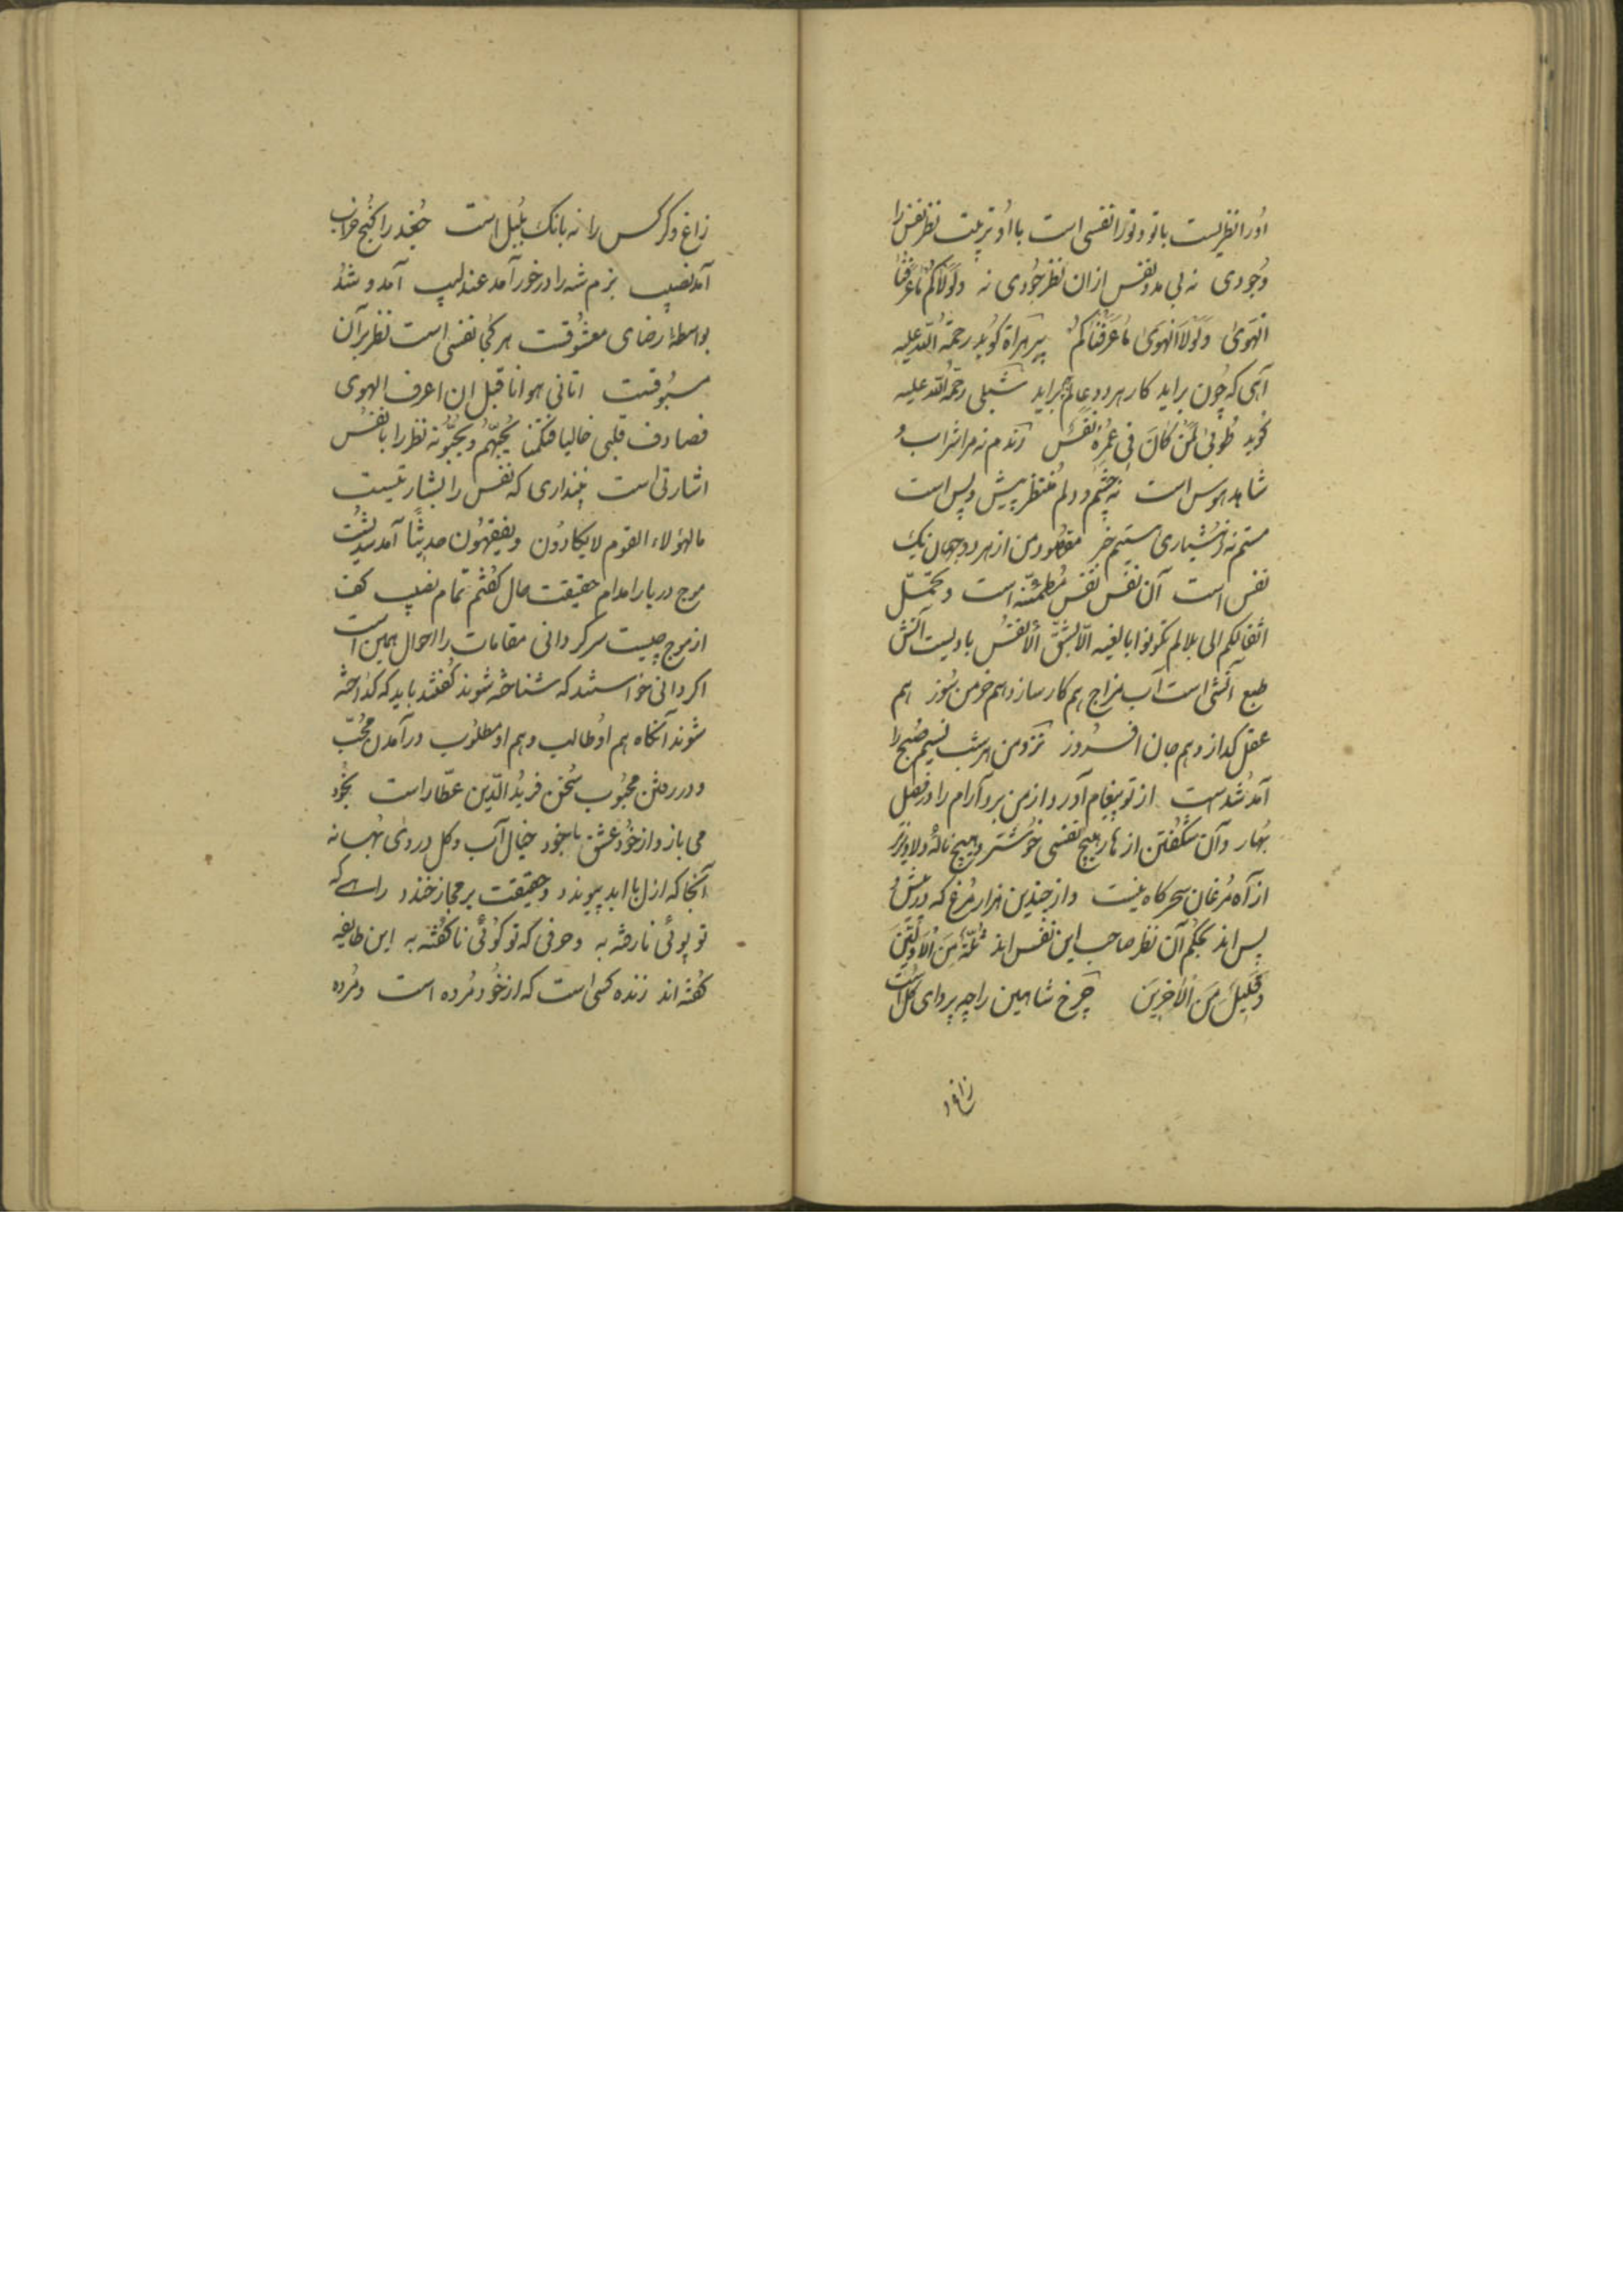 اورا نظریست باتو و تورا نفسی است با او تربیت نظر نفس را
وجودی نه بی مدد نفس ازان نظر جودی نه ولولاکم ماعرفنا
الهوی ولولا الهوی ماعرفناکم پیر هراة گوید رحمة الله علیه
آهی که چون براید کار هر دو عالم براید شبلی رحمة الله علیه
گوید طوبی لمن کان فی عمره نفس رندم نه مرا شراب و
شاهد هوس است نه چشم و دلم منتظر پیش و پس است
مستم نه ز هشیاری مستیم خبر مقصود من از هر دو جهان یک
نفس است آن نفس نفس مطمئنه است وتحمل
اثقالکم الی بلد لم تکونوا بالغیه الا بشق الانفس بادیست آتش
طبع آتشی است آب مزاج هم کار ساز و هم خرمن سوز هم
عقل گداز و هم جان افروز نزد من هر شب نسیم صبح را
آمد شدست از تو پیغام آورد از من برد آرام را در فصل
بهار و آن شکفتن ازهار هیچ نفسی خوشتر و هیچ ناله دلاویزتر
از آه مرغان سحرگاه نیست و از چندین هزار مرغ که در پیش و
پس اند بحکم آن نظر صاحب این نفس اند ثلة من الاولین
وقلیل من الاخرین چرخ شاهین را چه پروای گل است
زاغ و
زاغ و کرکس را نه بانگ بلبل است جغد را کنج خراب
آمد نصیب بزم شه را درخور آمد عندلیب آمد و شد
بواسطهٔ رضای معشوقست هر کجا نفسی است نظر بر آن
مسبوقست اتانی هواها قبل ان اعرف الهوی
فصادف قلبی خالیا فتمکنا یحبهم ویحبونه نظر را با نفس
اشارتی است نپنداری که نفس را بشارتیست
مالهؤلاء القوم لایکادون ویفقهون حدیثا آمد شد
موج دریا را مدام حقیقت حال گفتم تمام نصیب کف
از موج چیست سرگردانی مقامات را احوال همین است
اگر دانی خواستند که شناخته شوند گفتند باید که گداخته
شوند آنگاه هم او طالب و هم او مطلوب در آمدن محب
و در رفتن محبوب سخن فرید الدین عطار است بخود
می بازد از خود عشق با خود خیال آب و گل در روی بهانه
آنجا که ازل با ابد پیوندد و حقیقت بر مجاز خندد راهے که
تو پوئی نارفته به و حرفی که تو گوئی ناگفته به این طایفه
گفته اند زنده کسی است که از خود مرده است و مرده